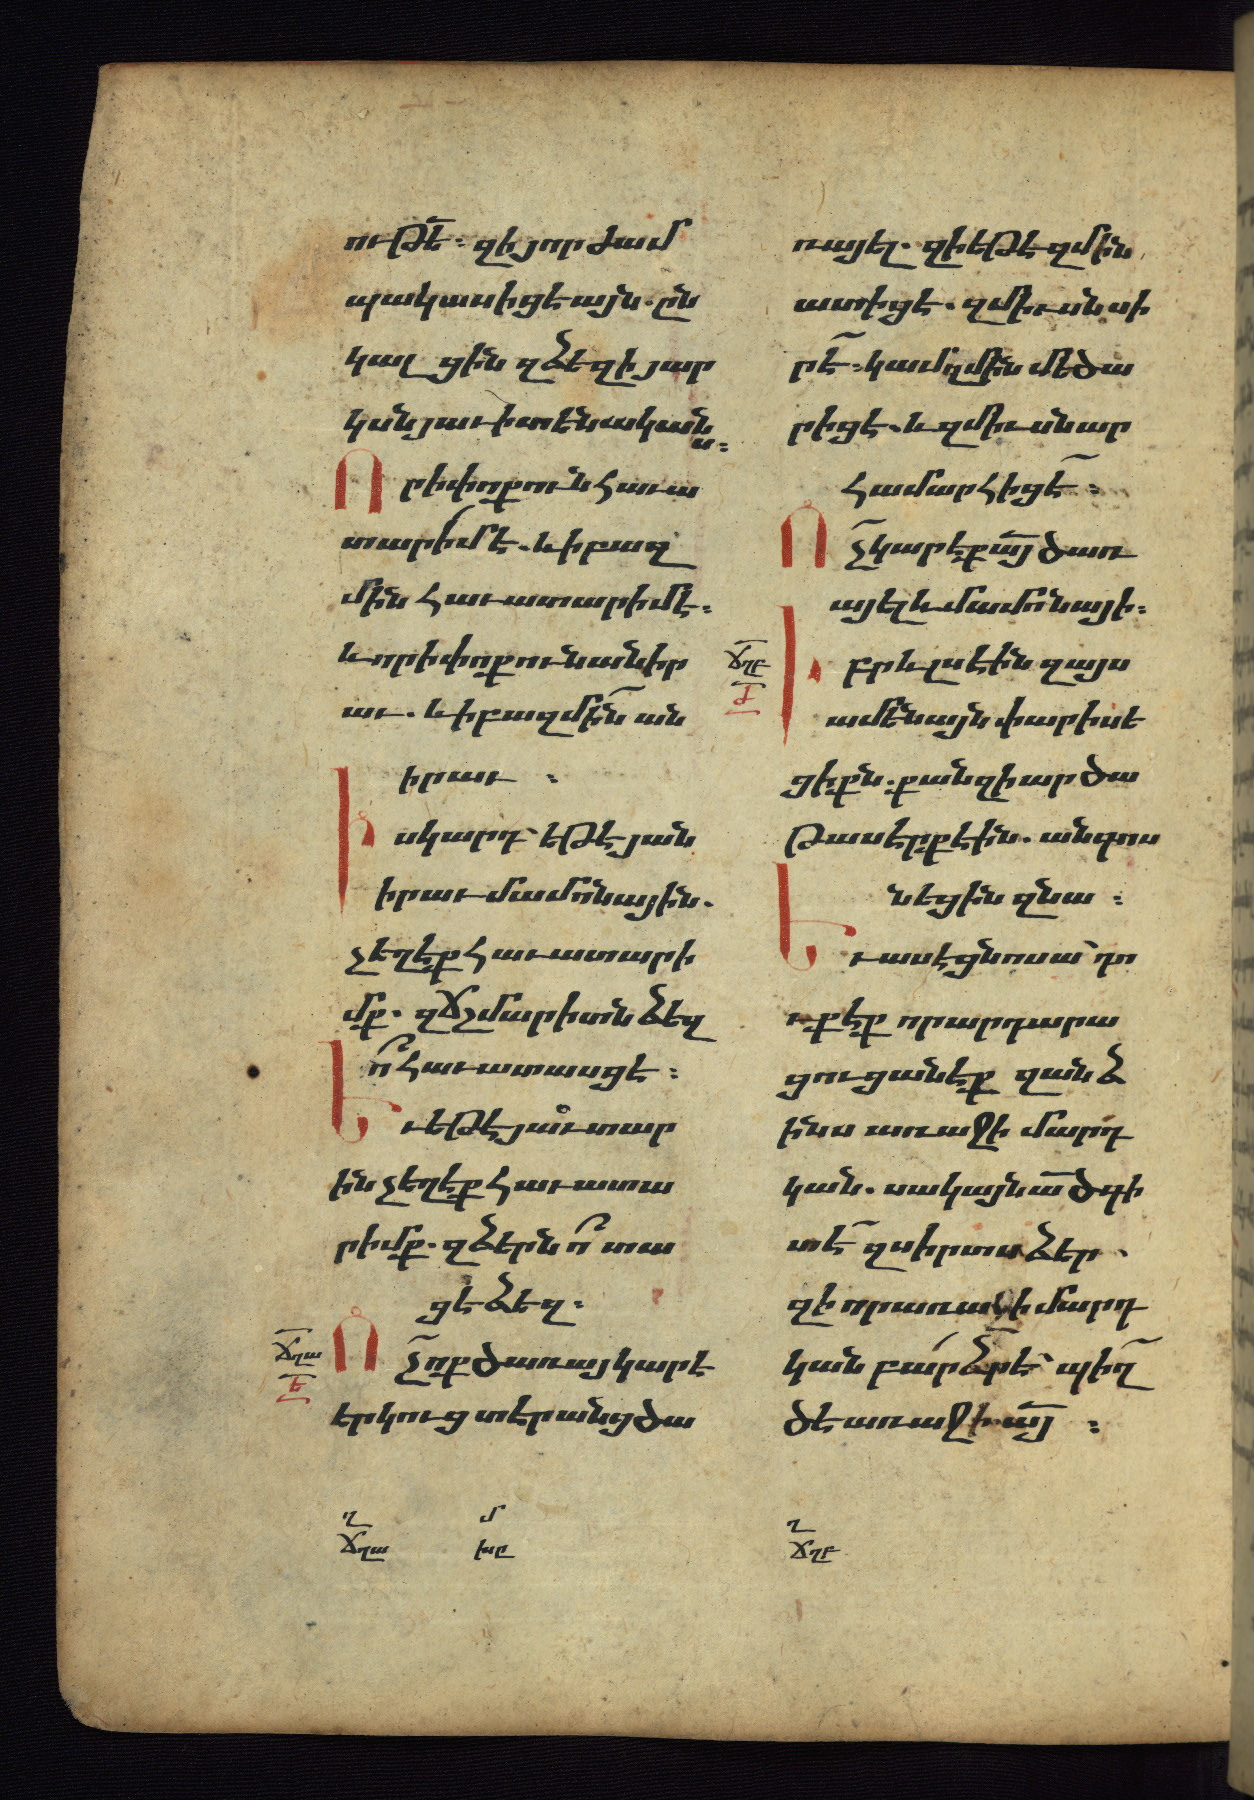 ութե̅։ զի յորժամ
պակասիցէ այն. ըն
կալցին զձեզ ի յար
կսն յաւիտենական
ս։
Որ ի փոքուն հաւա
տարիմ է. և ի բազ
մին հաւատարիմ է։
և որ ի փոքուն անիր
աւ. և ի բազմին ան
իրաւ ։
Իսկ արդ՝ եթէ յան
իրաւ մամոնային.
չեղէք հաւատարի
մք. զճշմարիտն ձեզ
ո՞ հաւատասցէ ։
Եւ եթէ յաւտար
ին չեղէք հաւատա
րիմք. զձերն ո՞ տա
ցէ ձեզ։
ՃՂԱ
Ե
Ոչ̅ ոք ծառայ կարէ
երկուց տերանց ծա
ՂՃՂԱ Մ ԽԸ
ռայել. զի եթէ զմին
ատիցէ. զմիւսն սի
րէ̅։ կամ զմին մեծա
րիցէ. և զմիւսն ար
համարհիցէ̅ ։
Ոչ̅ կարէք ա̅յ ծառ
այել և մամոնայի։
ՃՂԲ
Ժ
Իբրև լսէին զայս
ամենայն փարիսե
ցիքն. քանզի արծա
թասէրք էին. անգոս
նէցին զնա ։
Եւ ասէ ցնոսա՝ դո
ւք էք որ արդարա
ցուցանէք զանձ
ինս առաջի մարդ
կան. սակայն ա̅ծ գի
տէ̅ զսիրտս ձեր .
զի որ առաջի մարդ
կան բարձր է̅՝ պիղ̅
ծ է առաջի ա̅յ ։
Ղ
ՃՂԲ